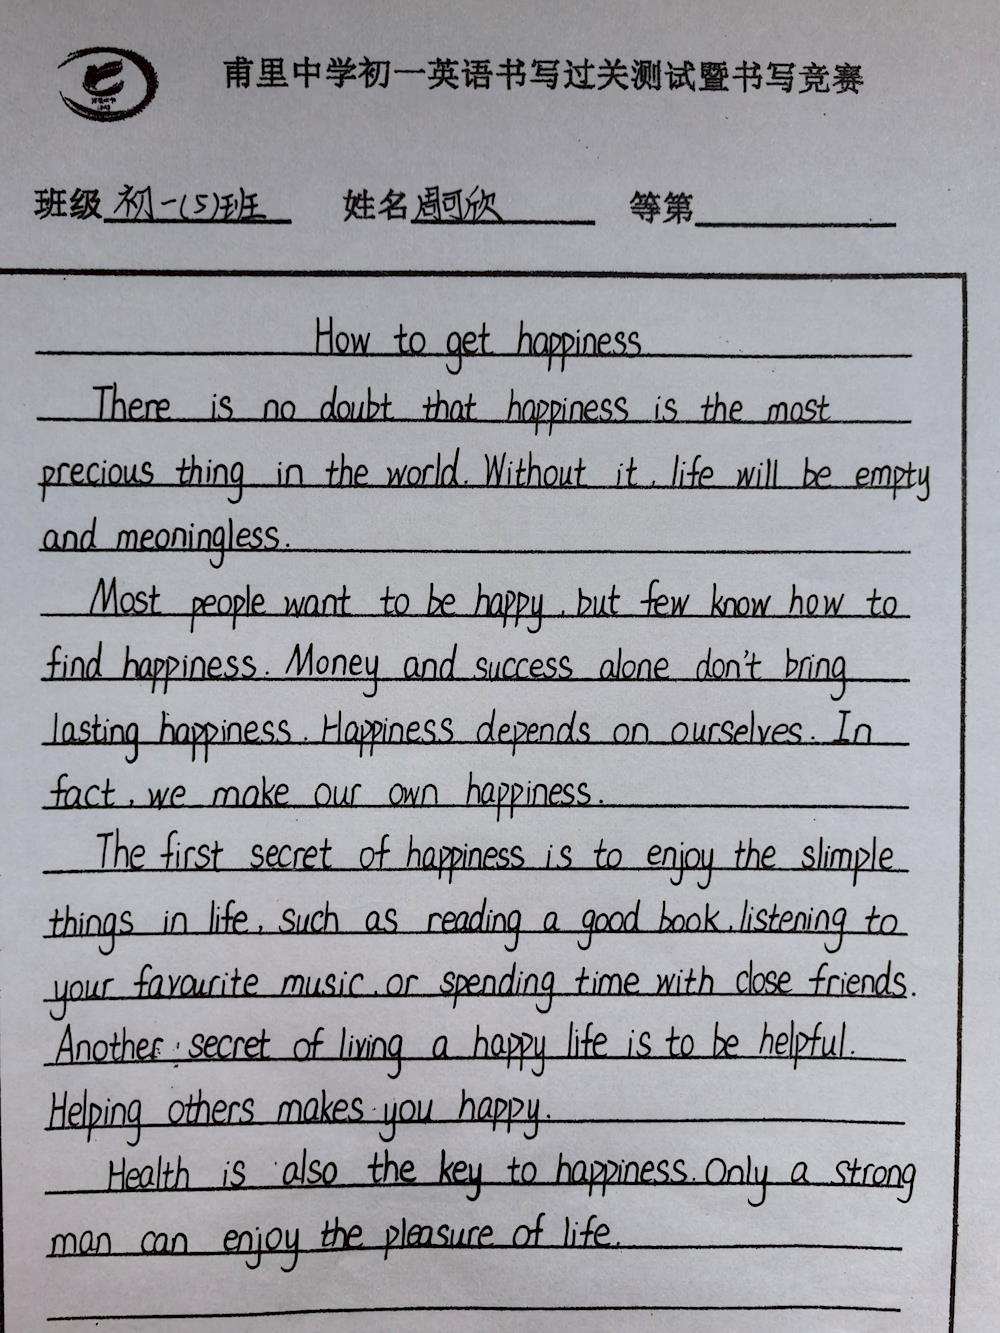 甫里中学初一英语书写过关测试暨书写竞赛
班级 初一(5)班 姓名 周可欣 等第
How to get happiness
There is no doubt that happiness is the most
precious thing in the world. Without it, life will be empty
and meoningless.
Most people want to be happy, but few know how to
find happiness. Money and success alone don't bring
lasting happiness. Happiness depends on ourselves. In
fact, we make our own happiness.
The first secret of happiness is to enjoy the slimple
things in life, such as reading a good book, listening to
your favourite music, or spending time with close friends.
Another secret of living a happy life is to be helpful.
Helping others makes you happy.
Health is also the key to happiness. Only a strong
man can enjoy the pleasure of life.